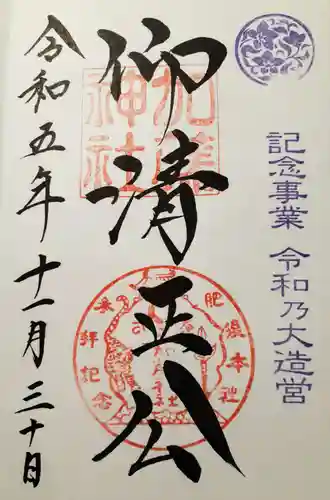 記念事業 令和乃大造営
仰清正公
加藤神社
肥後本社
参拝記念
令和五年十一月三十日